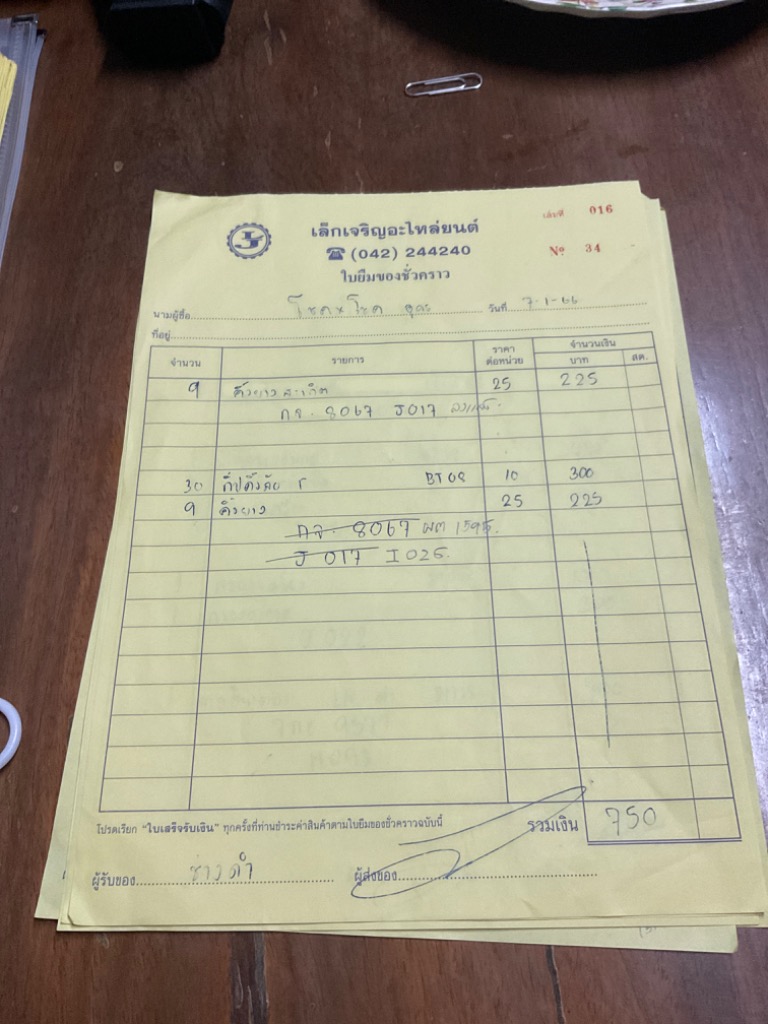 เล็กเจริญอะไหล่ยนต์
เล่มที่ 016
☎ (042) 244240
№ 34
ใบยืมของชั่วคราว
นามผู้ซื้อ โชคชโชค อุดร วันที่ 7-1-66
ที่อยู่
จำนวน รายการ ราคาต่อหน่วย จำนวนเงิน บาท สต.
9 คิ้วยาง 25 225
กจ. 8067 J017
30 กิ๊ปคิ้วกัน BT08 10 300
9 คิ้วยาง 25 225
กจ. 8067 ผต 1595
J 017 I 025
โปรดเรียก "ใบเสร็จรับเงิน" ทุกครั้งที่ท่านชำระค่าสินค้าตามใบยืมของชั่วคราวฉบับนี้
รวมเงิน 750
ผู้รับของ ช่างดำ ผู้ส่งของ